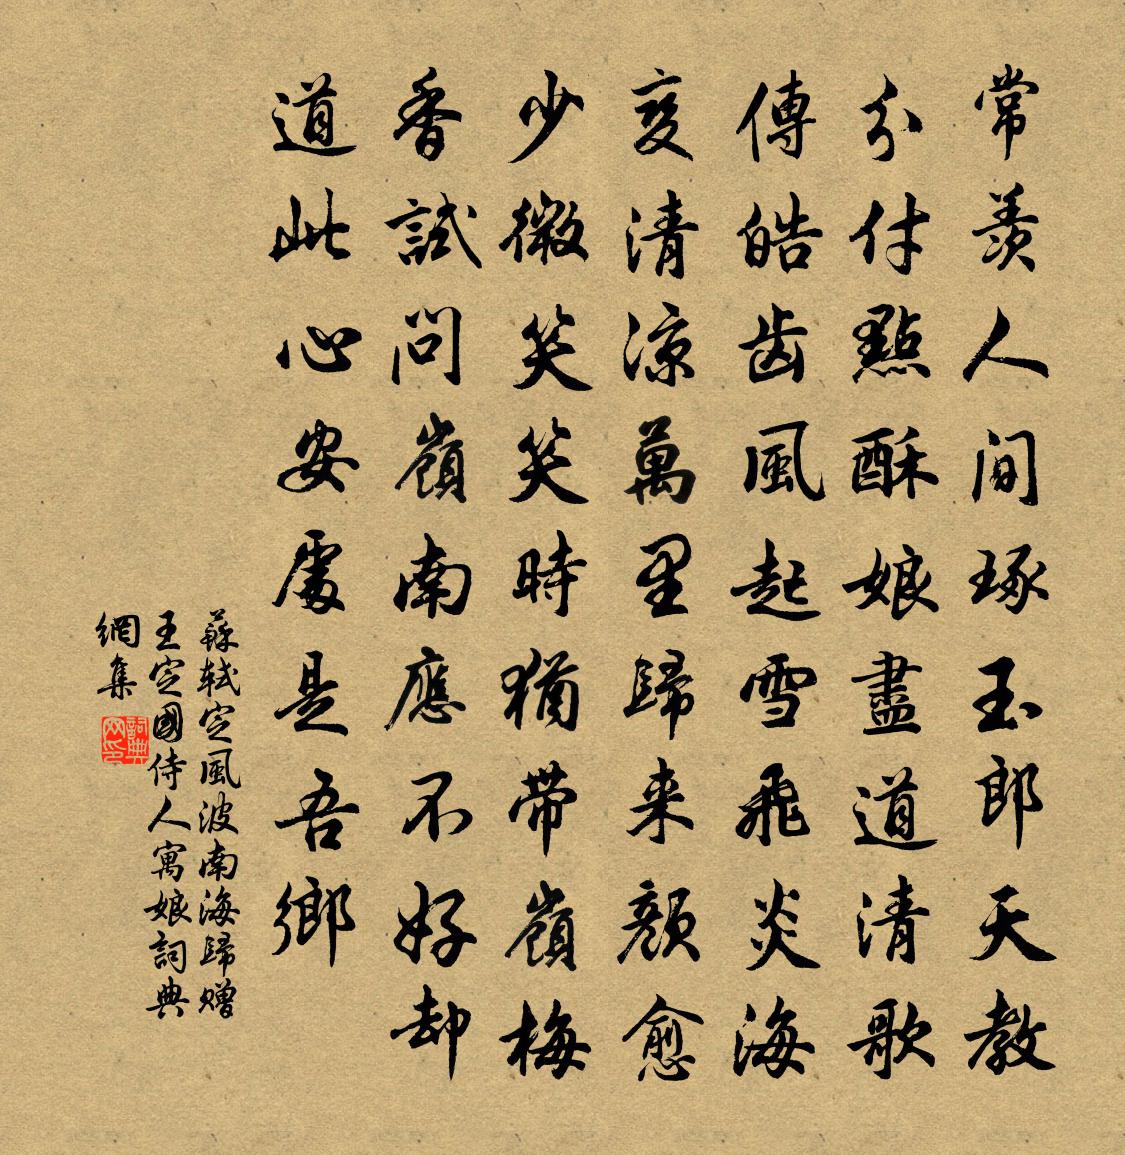 常羨人間琢玉郎天教
分付點酥娘盡道清歌
傳皓齒風起雪飛炎海
變清涼萬里歸来顏愈
少微笑笑時猶帶嶺梅
香試問嶺南應不好却
道此心安處是吾鄉
蘇軾定風波南海歸贈
王定國侍人寓娘詞典
網集
詞典
网印